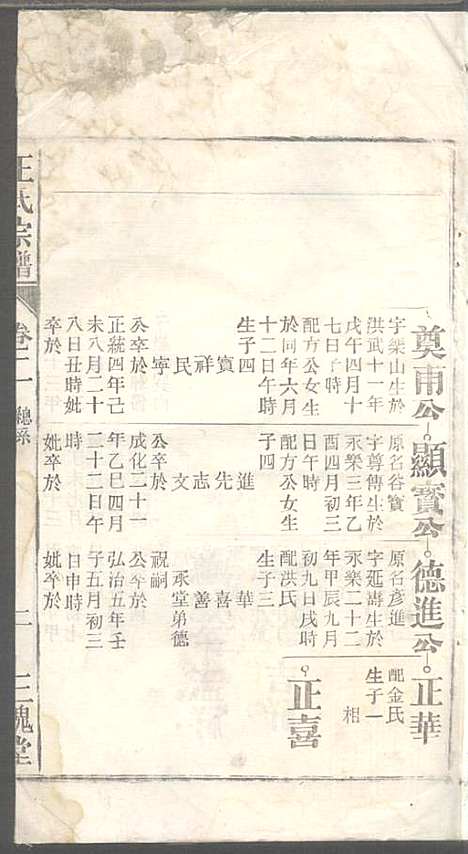 奠甫公
字樂山生於
洪武十一年
戊午四月十
七日子時
配方公女生
於同年六月
十二日午時
生子四
寳
祥
民
寧
公卒於
正統四年己
未八月二十
八日丑時妣
卒於
顯寳公
原名谷寳
字尊傳生於
永樂三年乙
酉四月初三
日午時
配方公女生
子四
進
先
志
文
公卒於
成化二十一
年乙巳四月
二十二日午
時
妣卒於
德進公
原名彥進
字延壽生於
永樂二十二
年甲辰九月
初九日戌時
配洪氏
生子三
華
喜
善
承堂弟德
祝嗣
公卒於
弘治五年壬
子五月初三
日申時
妣卒於
正華
配金氏
生子一
相
正喜
王氏宗譜
卷二
總系
二
三槐堂